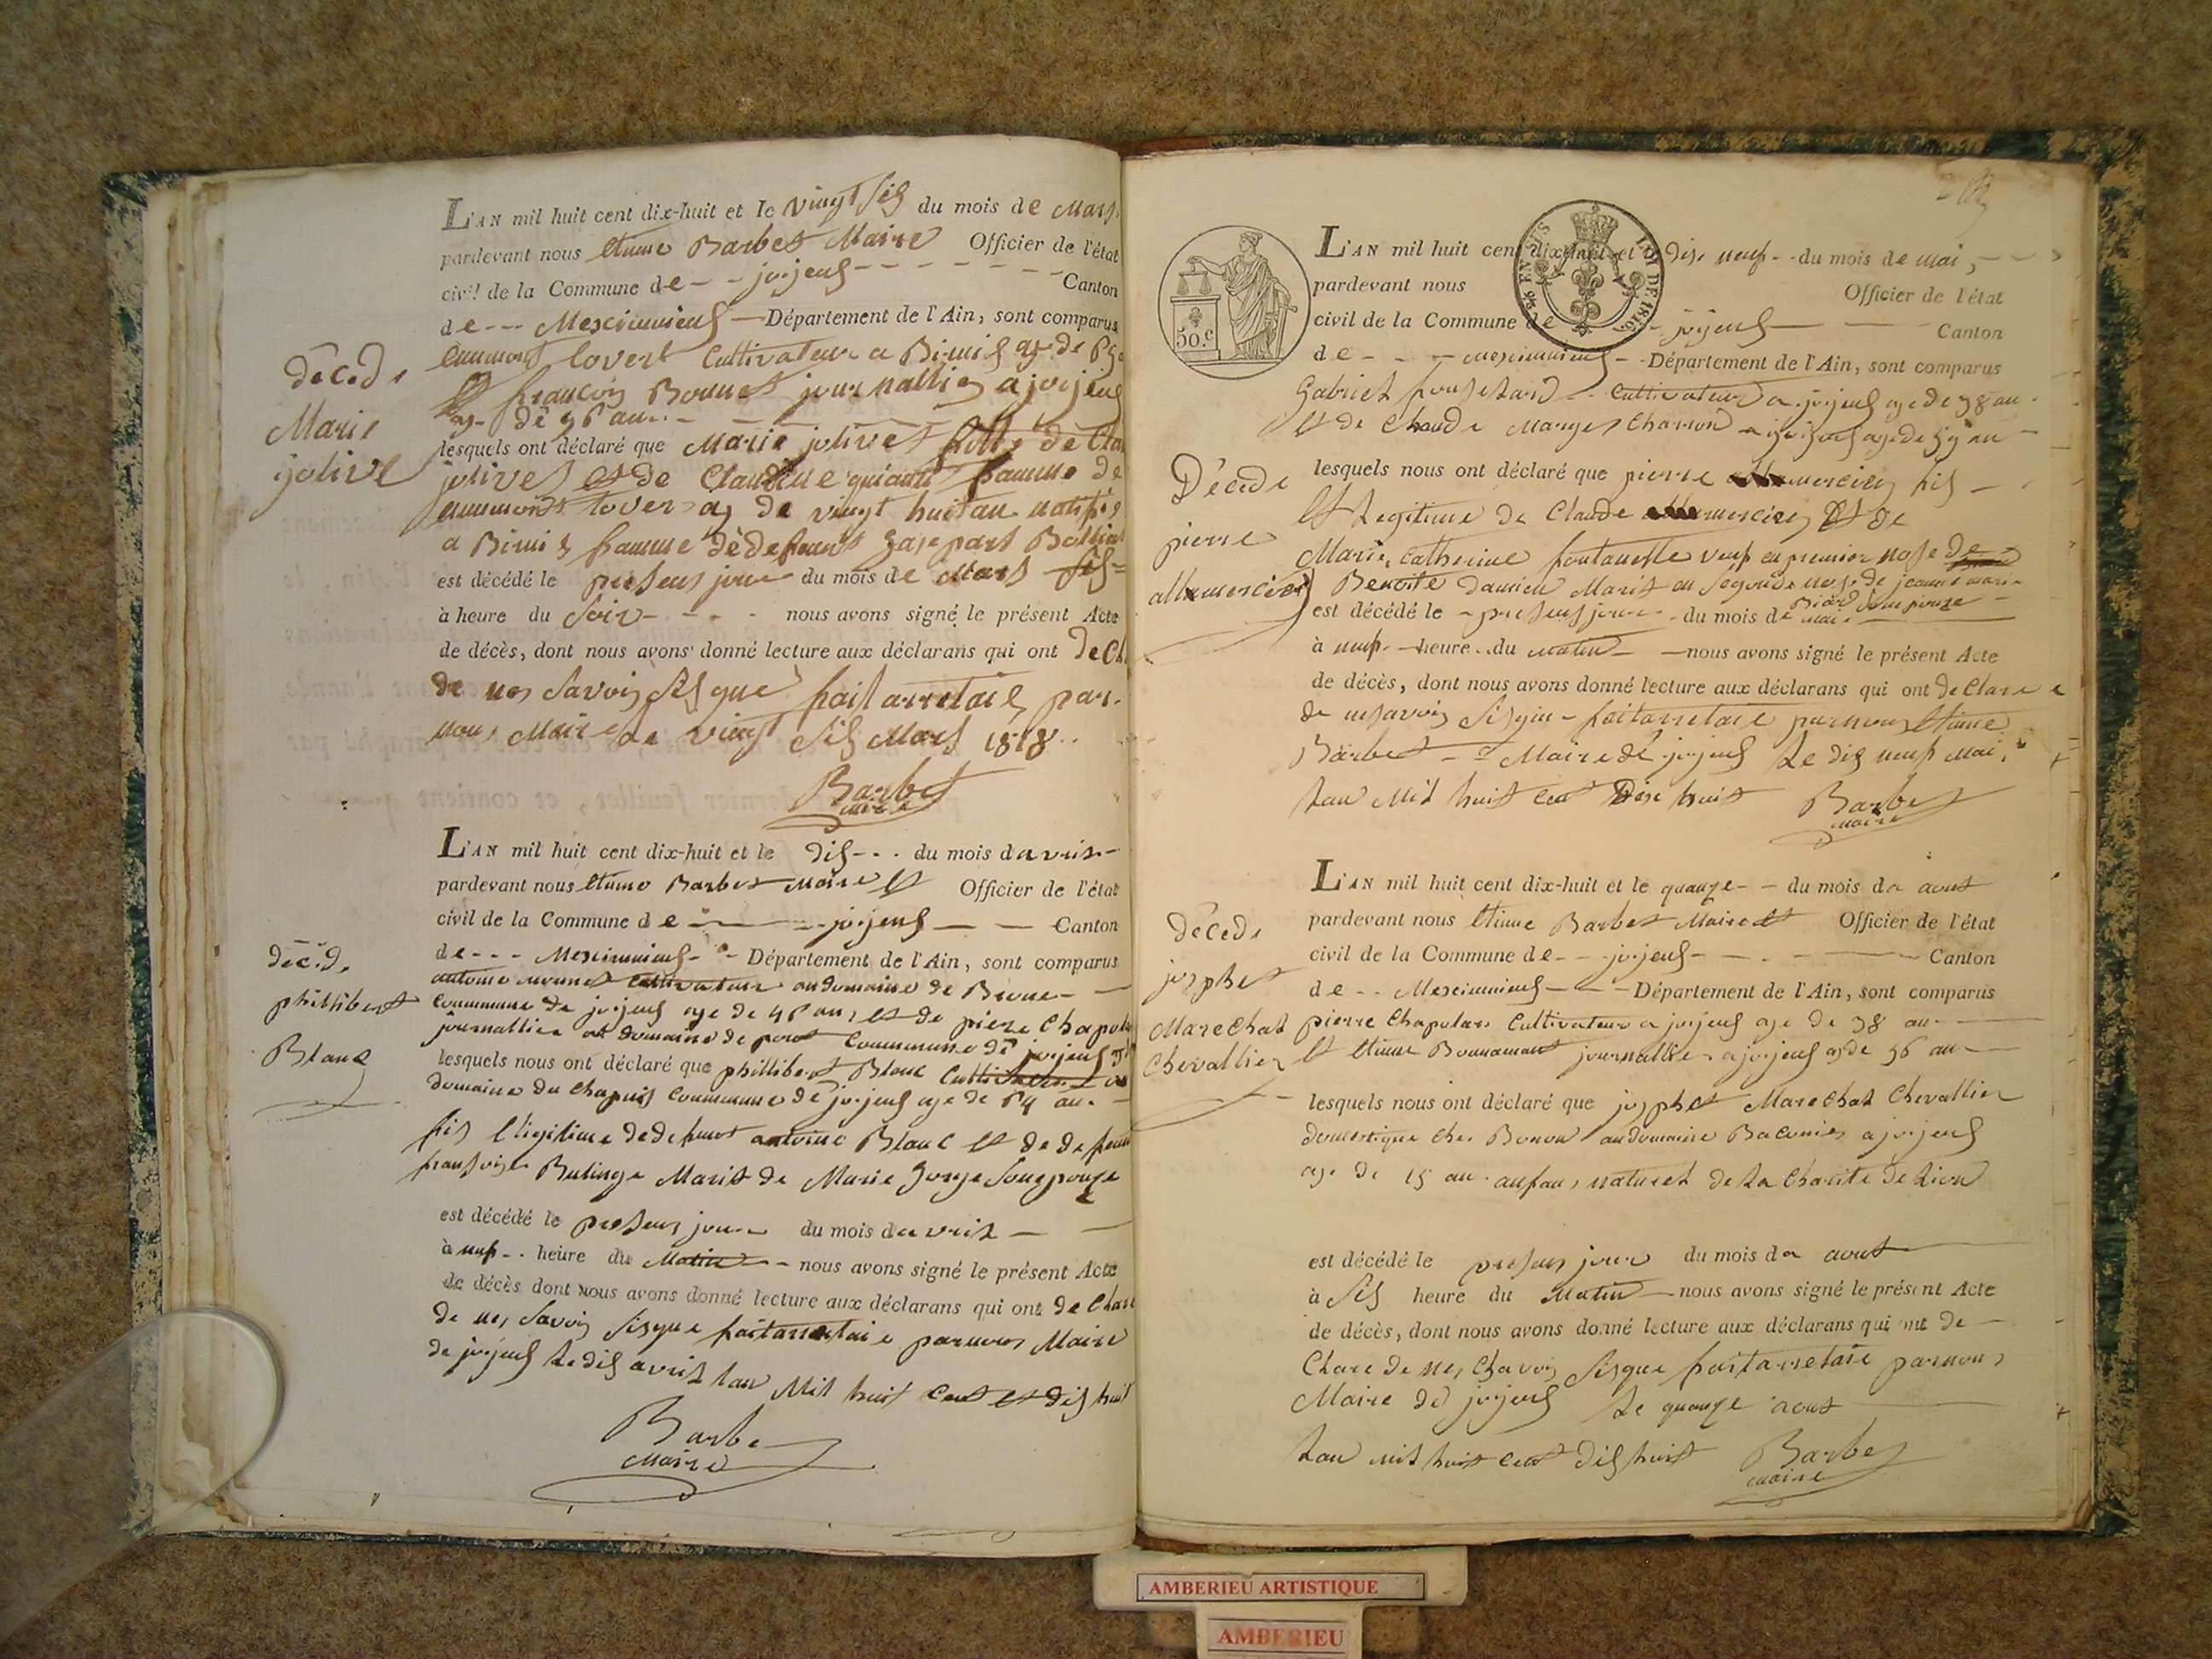 L'AN mil huit cent dix-huit et le vingt sis du mois de Mars
pardevant nous Etiene Barbet Maire Officier de l'état
civil de la Commune de joijeus Canton
de Meximieus Département de l'Ain, sont comparus
lovert Cultivateur a Birius de
francois Bonnet journallier a joijeus
age de 56 an
decede
Marie
jolive
lesquels ont déclaré que Marie jolivet fille de Clau
jolivet et de Claudine famme de
lover age de vingt huit an natifs
a famme de defeunt gaspart
est décédé le present jour du mois de Mars
à heure du Soir nous avons signé le présent Acte
de décès, dont nous avons donné lecture aux déclarans qui ont de Cla
de nes savois sisgne fait arretaie par
nous Maire le vingt sis Mars 1818
Barbet
Maire
L'AN mil huit cent dix-huit et le dis du mois davris
pardevant nous Etiene Barbet Maire et Officier de l'état
civil de la Commune de joijeus Canton
de Meximieus Département de l'Ain, sont comparus
antoine Cultivateur au domaine de
Commune de joijeus age de 46 ans et de piere Chapola
journallier au domaine de Commune de joijeus
deced
phillibert
Blanc
lesquels nous ont déclaré que phillibert Blanc Cultivateur
domaine du Chapuis Commune de joijeus age de 64 an
fis legitime de defeunt antoine Blanc et de defeun
franSoise Bulinge Marit de Marie gorge Son epouse
est décédé le present jour du mois davris
à neuf heure du Matin nous avons signé le présent Acte
de décès dont nous avons donné lecture aux déclarans qui ont de Clare
de nes Savois Sisgne fait arretaie par nous Maire
de joijeus le dis avris lan Mil huit Cent et dis huit
Barbe
Maire
50.c
EN SUS
LOI DE 1816.
L'AN mil huit cent dix-huit et dise neuf du mois de mai
pardevant nous Officier de l'état
civil de la Commune de joijeus Canton
de meximieus Département de l'Ain, sont comparus
Gabriel Cultivateur a joijeus age de 38 an
et de Claude Charron a joijeus age de 59 an
Decede
pierre
allumercier
lesquels nous ont déclaré que pierre mercier fis
et Legitime de Claude mercier et de
Marie Catherine fontanelle veuf en premier nose de
Benoite damien Marit en Segonde nose de jeanne marie
Biard Son epouse
est décédé le present jour du mois de mai
à neuf heure du matin nous avons signé le présent Acte
de décès, dont nous avons donné lecture aux déclarans qui ont de Clare
de ne savois Sisgne fait arretaie par nous Etiene
Barbet Maire de joijeus Le dis neuf Mai
Lan Mil huit Cent Dise huit
Barbet
Maire
L'AN mil huit cent dix-huit et le quanze du mois da aout
pardevant nous Etiene Barbet Maire et Officier de l'état
civil de la Commune de joijeus Canton
de Meximieus Département de l'Ain, sont comparus
pierre Chapolan Cultivateur a joijeus age de 38 an
et Etiene Bonnamant journallier a joijeus age de 56 an
decede
josphet
MareChat
Chevallier
lesquels nous ont déclaré que josphet MareChat Chevallier
domestique Ches Bonon au domaine Baconies a joijeus
age de 15 an anfans naturel de La Charite de Lion
est décédé le presens jour du mois da aout
à Sis heure du Matin nous avons signé le présent Acte
de décès, dont nous avons donné lecture aux déclarans qui ont de
Clare de nes Chavois Sisgne fait arretaie par nous
Maire de joijeus Le quanze aout
Lan mil huit Cent dis huit
Barbet
Maire
AMBERIEU ARTISTIQUE
AMBERIEU